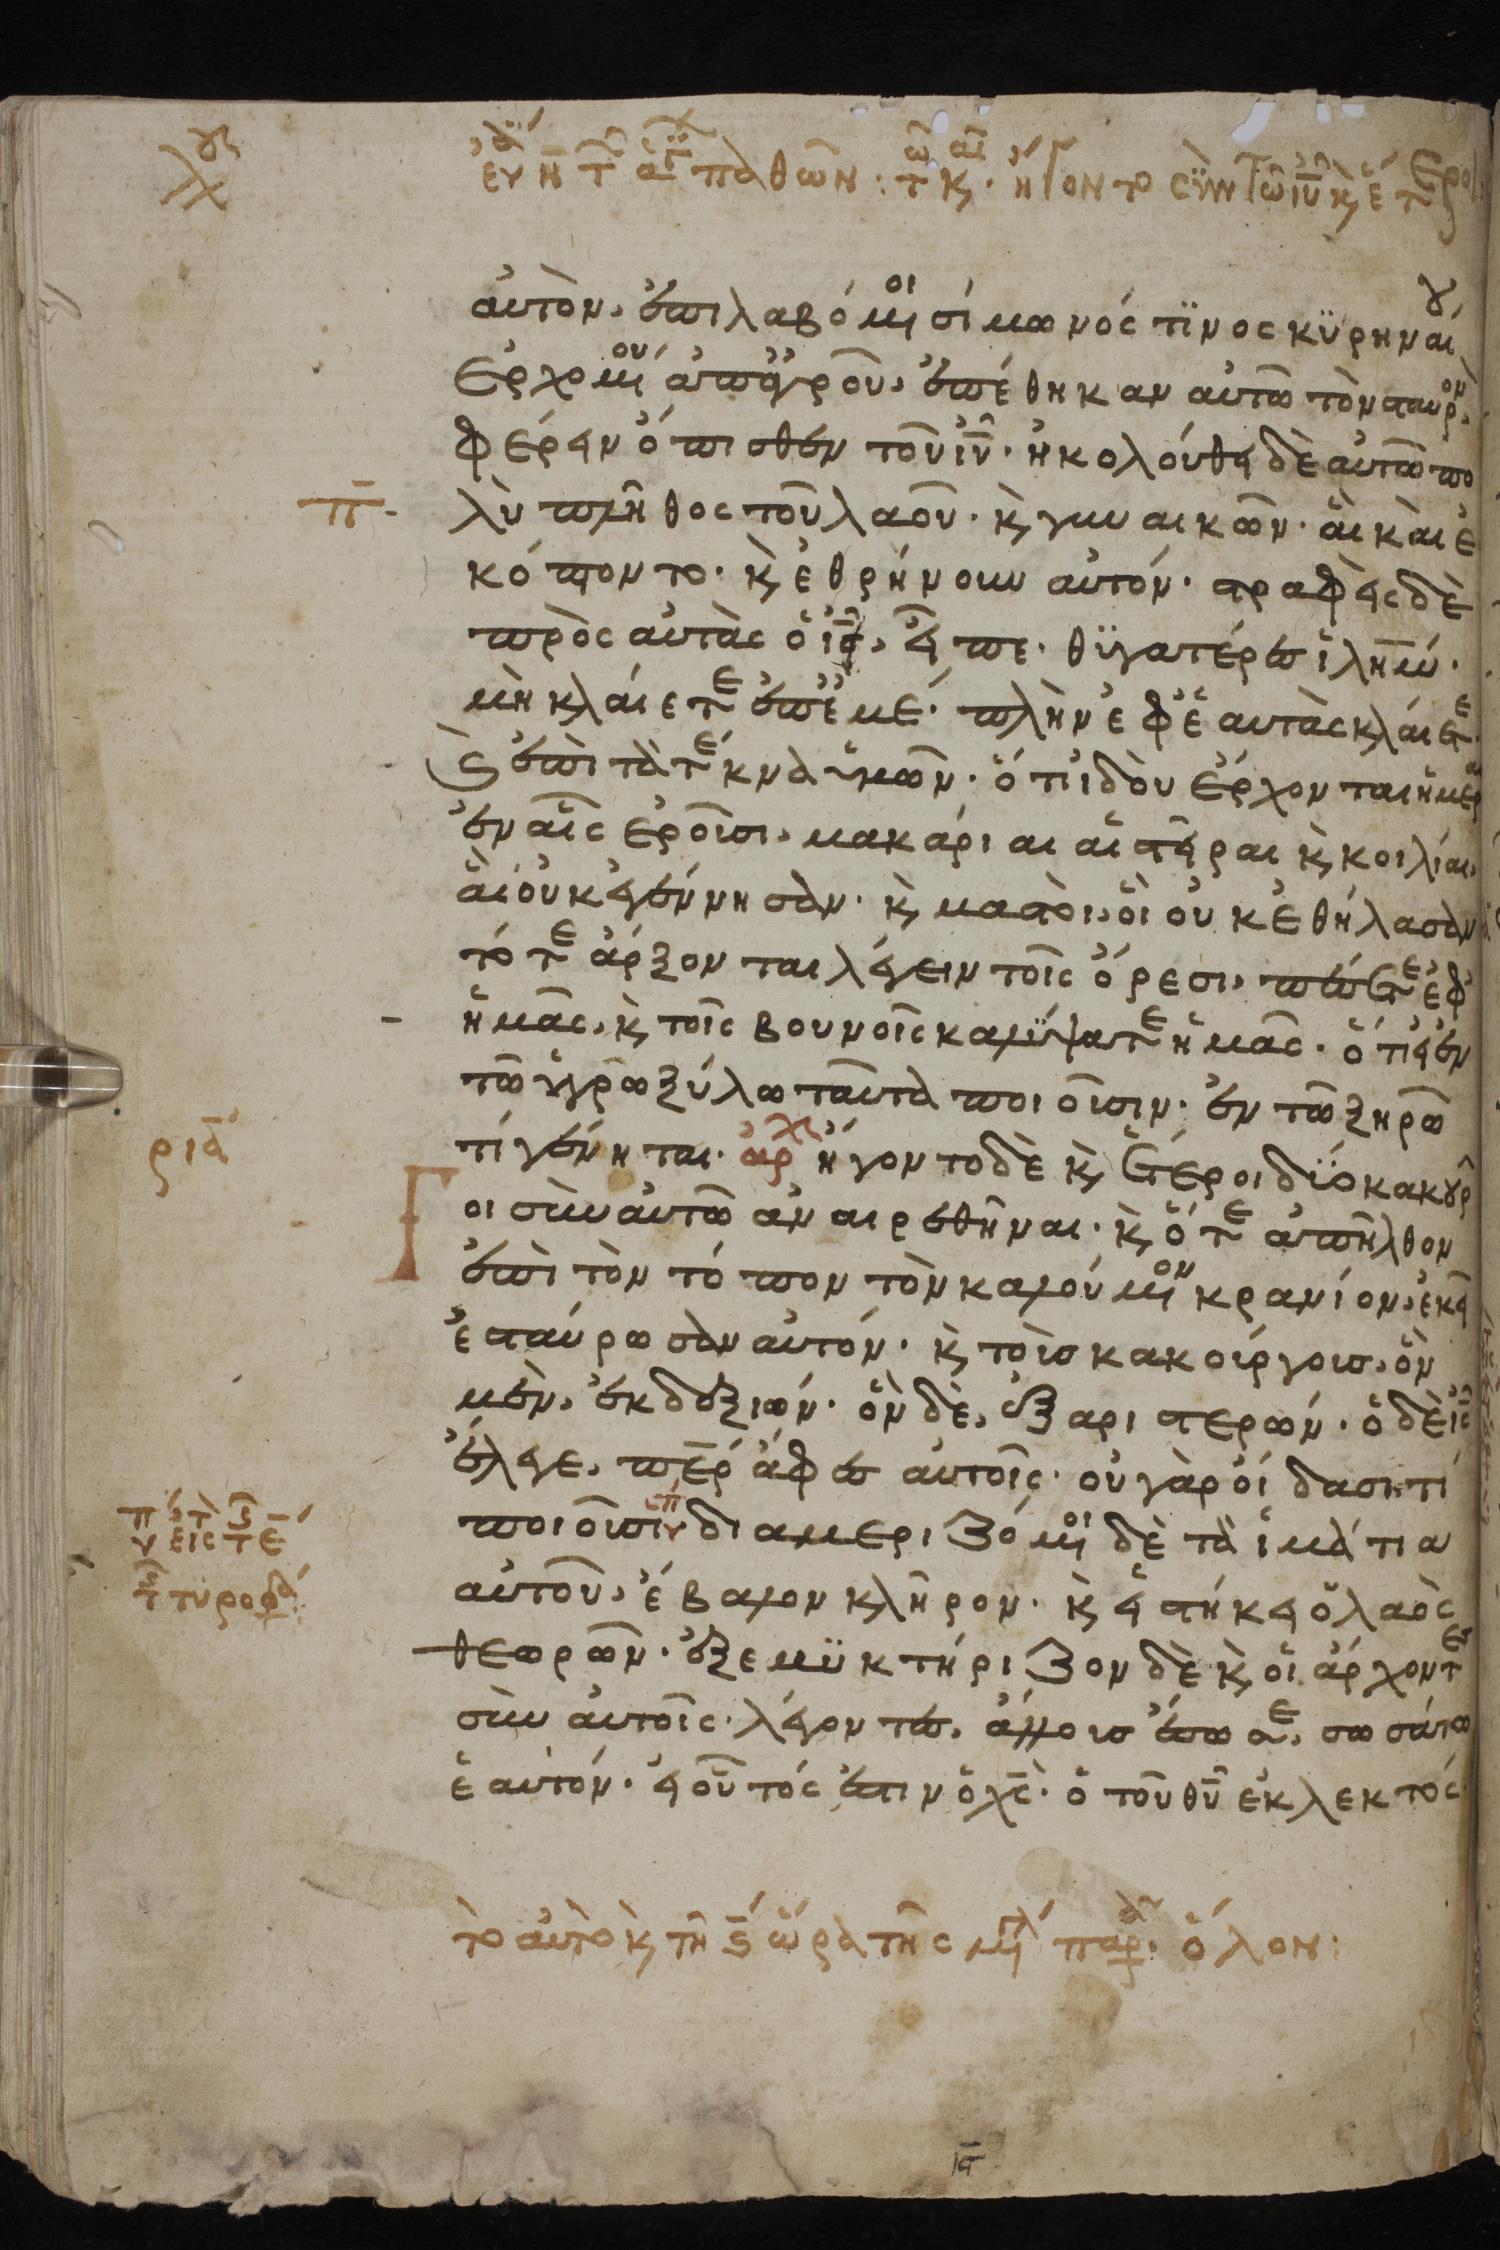 αὐτὸν, ἐπιλαβόμενοι σίμωνός τϊνος κϋρηναίου
ἐρχομένου ἀπ' ἀγροῦ, ἐπέθηκαν αὐτῶ τὸν σταυρὸν,
φέρειν ὄπισθεν τοῦ ἰῦ· ἠκολούθει δὲ αὐτῶ πο
λὺ πλῆθος τοῦ λαοῦ· κὶ γυναικῶν· αἳ καὶ ἐ
κόπτοντο· κὶ ἐθρήνουν αὐτόν· στραφεὶς δὲ
πρὸς αὐτὰς ὁ ἰς, εἶπε· θϋγατέρες ἱλημ·
μὴ κλαίετε ἐπ' ἐμέ· πλὴν ἐφ' ἑαυτὰς κλαίετε·
κὶ ἐπὶ τὰ τέκνα ὑμῶν· ὅτι ἰδοὺ ἔρχονται ἡμέραι
ἐν αἷς ἐροῦσι, μακάριαι αἱ στεῖραι κὶ κοιλίαι,
αἳ οὐκ ἐγέννησαν· κὶ μαστοὶ, οἳ οὐκ ἐθήλασαν
τότε ἄρξονται λέγειν τοῖς ὄρεσι, πέσετε ἐφ'
ἡμᾶς, κὶ τοῖς βουνοῖς καλύψατε ἡμᾶς· ὅτι εἰ ἐν
τῶ ὑγρῶ ξύλω ταῦτα ποιοῦσιν· ἐν τῶ ξηρῶ
τί γένηται· ἀρχ ἤγοντο δὲ κὶ ἕτεροι δϋο κακοῦρ
ριδ
γοι σὺν αὐτῶ ἀναιρεθῆναι· κὶ ὅτε ἀπῆλθον
ἐπὶ τὸν τόπον τὸν καλούμενον κρανίον, ἐκεῖ
ἐσταύρωσαν αὐτόν· κὶ τοὺς κακούργους, ὃν
μὲν, ἐκ δεξιῶν· ὃν δὲ, ἐξ ἀριστερῶν· ὁ δὲ ἰς
ἔλεγε, περ ἄφες αὐτοῖς· οὐ γὰρ οἴδασι τί
ποιοῦσιν· διαμεριζόμενοι δὲ τὰ ἱμάτια
αὐτοῦ, ἔβαλον κλῆρον· κὶ εἱστήκει ὁ λαὸς
θεωρῶν· ἐξεμϋκτήριζον δὲ κὶ οἱ ἄρχοντες
σὺν αὐτοῖς· λέγοντες, ἄλλους ἔσωσε, σωσάτω
ἑαυτόν· εἰ οὗτός ἐστιν ὁ χς· ὁ τοῦ θυ ἐκλεκτός·
τὸ αὐτὸ κὶ τῆ ς ὥρα τῆς μεγάλ παρ· ὅλον: